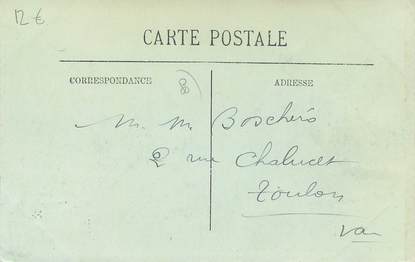 12 €
CARTE POSTALE
CORRESPONDANCE
ADRESSE
80
M. M. Boschéro
2 rue Chalucet
Toulon
Var